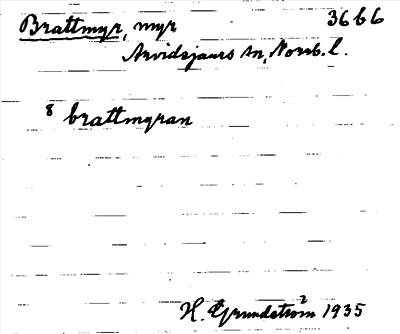 Brattmyr, myr 3666
Arvidsjaurs sn, Norrb. l.
8 brattmyran
H. Grundström 1935